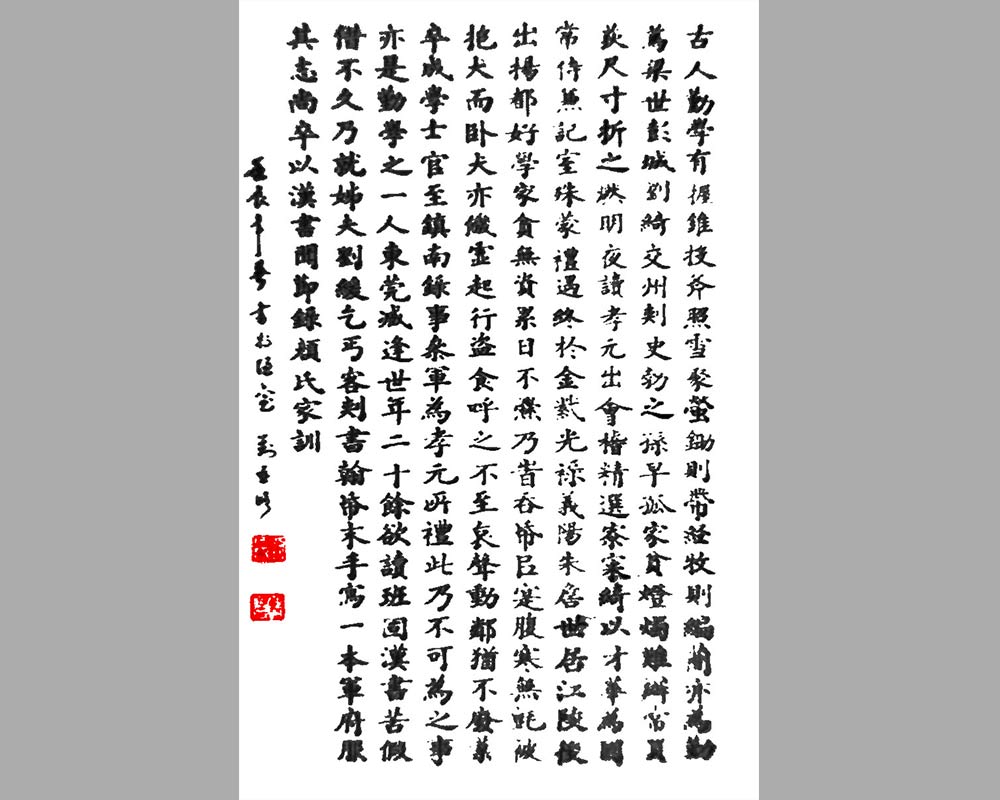 古人勤學有握錐投斧照雪聚螢鋤則帶經牧則編簡亦為勤
篤梁世彭城劉綺交州刺史勃之孫早孤家貧燈燭難辦常買
荻尺寸折之然明夜讀孝元出會稽精選寮寀綺以才華為國
常侍兼記室殊蒙禮遇終於金紫光祿義陽朱詹世居江陵後
出楊都好學家貧無資累日不爨乃旹吞帋㠯寔腹寒無氈被
抱犬而卧犬亦飢虛起行盜食呼之不至哀聲動鄰猶不廢業
卒成學士官至鎮南錄事參軍為孝元所禮此乃不可為之事
亦是勤學之一人東莞臧逢世年二十餘欲讀班固漢書苦假
借不久乃就姊夫劉緩乞丐客刺書翰帋末手寫一本軍府服
其志尚卒以漢書聞節錄顏氏家訓
書於